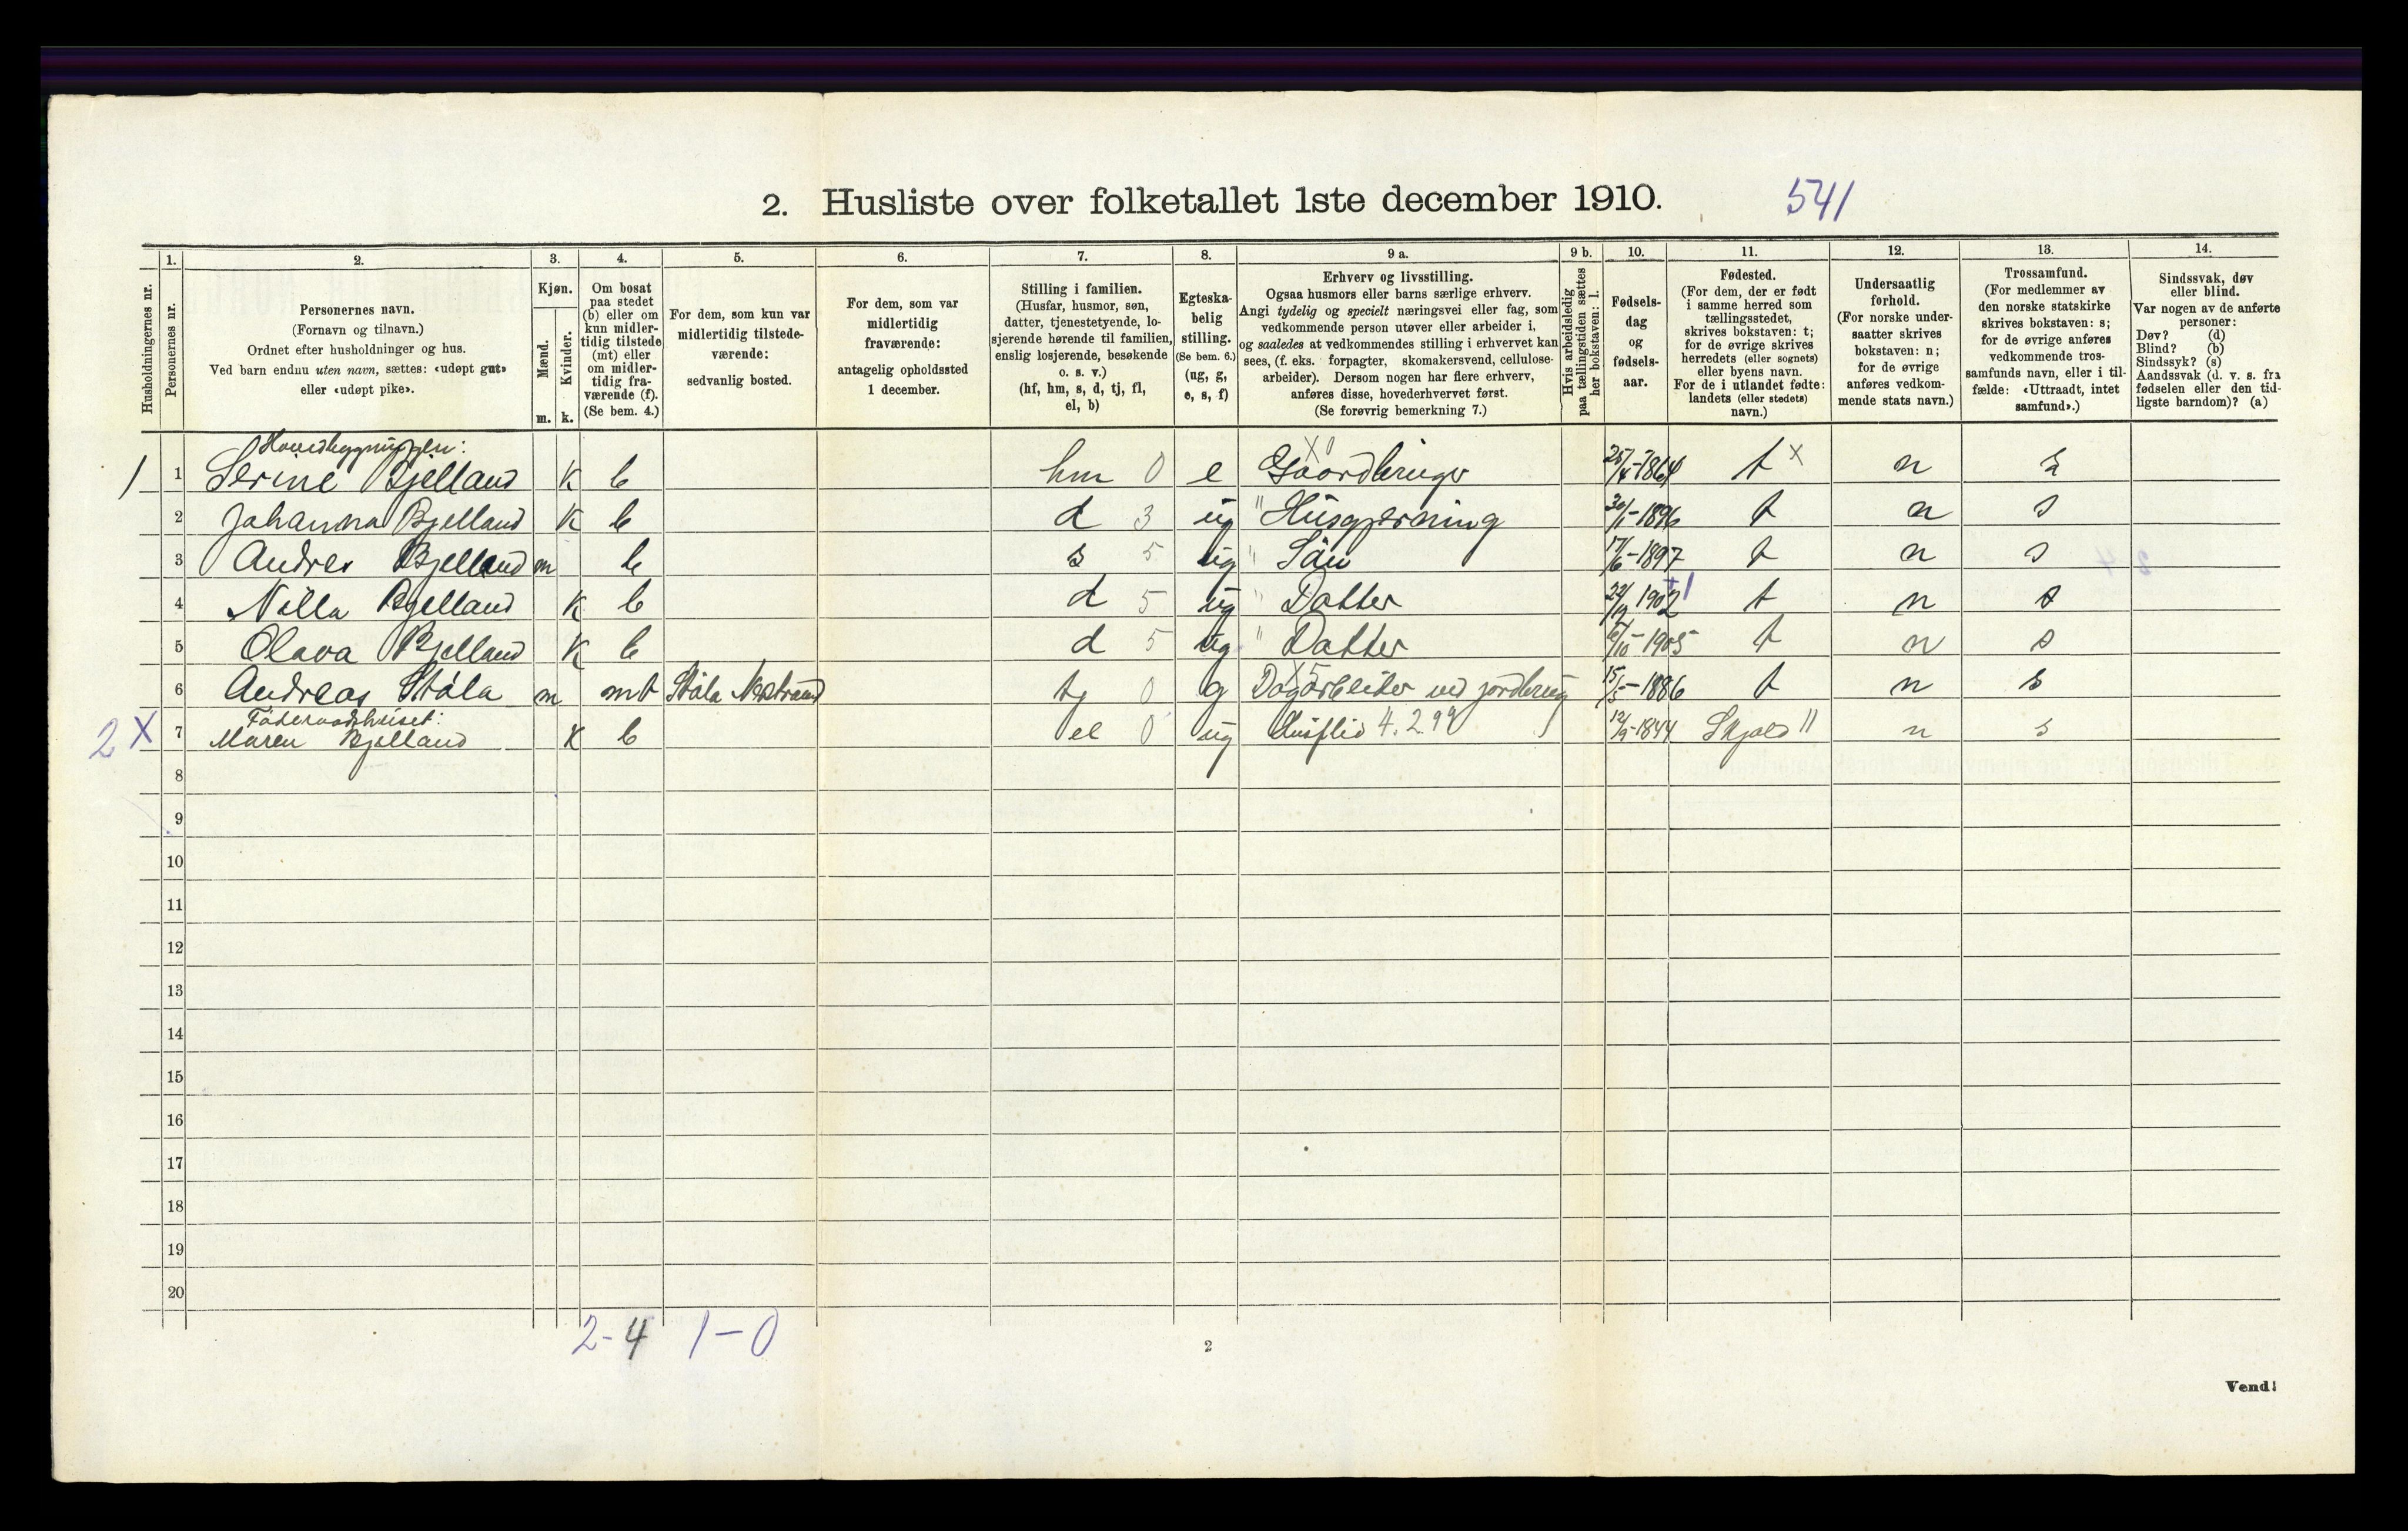 2. Husliste over folketallet 1ste december 1910. 541
Husholdningernes nr.
1. Personernes nr.
2. Personernes navn.
(Fornavn og tilnavn.)
Ordnet efter husholdninger og hus.
Ved barn endnu uten navn, sættes: «udøpt gut»
eller «udøpt pike».
3. Kjøn.
Mænd. m.
Kvinder. k.
4. Om bosat
paa stedet
(b) eller om
kun midler-
tidig tilstede
(mt) eller
om midler-
tidig fra-
værende (f).
(Se bem. 4.)
5. For dem, som kun var
midlertidig tilstede-
værende:
sedvanlig bosted.
6. For dem, som var
midlertidig
fraværende:
antagelig opholdssted
1 december.
7. Stilling i familien.
(Husfar, husmor, søn,
datter, tjenestetyende, lo-
sjerende hørende til familien,
enslig losjerende, besøkende
o. s. v.)
(hf, hm, s, d, tj, fl,
el, b)
8. Egteska-
belig
stilling.
(Se bem. 6.)
(ug, g,
e, s, f)
9 a. Erhverv og livsstilling.
Ogsaa husmors eller barns særlige erhverv.
Angi tydelig og specielt næringsvei eller fag, som
vedkommende person utøver eller arbeider i,
og saaledes at vedkommendes stilling i erhvervet kan
sees, (f. eks. forpagter, skomakersvend, cellulose-
arbeider). Dersom nogen har flere erhverv,
anføres disse, hovederhvervet først.
(Se forøvrig bemerkning 7.)
9 b. Hvis arbeidsledig
paa tællingstiden sættes
her bokstaven: l.
10. Fødsels-
dag
og
fødsels-
aar.
11. Fødested.
(For dem, der er født
i samme herred som
tællingsstedet,
skrives bokstaven: t;
for de øvrige skrives
herredets (eller sognets)
eller byens navn.
For de i utlandet fødte:
landets (eller stedets)
navn.)
12. Undersaatlig
forhold.
(For norske under-
saatter skrives
bokstaven: n;
for de øvrige
anføres vedkom-
mende stats navn.)
13. Trossamfund.
(For medlemmer av
den norske statskirke
skrives bokstaven: s;
for de øvrige anføres
vedkommende tros-
samfunds navn, eller i til-
fælde: «Uttraadt, intet
samfund».)
14. Sindssvak, døv
eller blind.
Var nogen av de anførte
personer:
Døv? (d)
Blind? (b)
Sindssyk? (s)
Aandssvak (d. v. s. fra
fødselen eller den tid-
ligste barndom)? (a)
Hovedbygningen:
1 1 Serine Bjelland k b hm 0 e Gaardbruger 1864 t x n s
2 Johanna Bjelland k b d 3 ug " Husgjerning 30/1-1896 t n s
3 Andres Bjelland m b s 5 ug " Sön 17/6-1897 t n s
4 Nilla Bjelland k b d 5 ug " Datter 1902 t n s
5 Olava Bjelland k b d 5 ug " Datter 6/10-1905 t n s
6 Andreas Ståla m mt Ståla Nedstrand tj 0 g Dagarbeider ved jordbrug 15/5-1886 t n s
Föderaadshuset:
2 X 7 Maren Bjelland k b el 0 ug Husflid 4.2.99 12/9-1844 Skjold 11 n s
8
9
10
11
12
13
14
15
16
17
18
19
20
2-4 1-0
2
Vend!